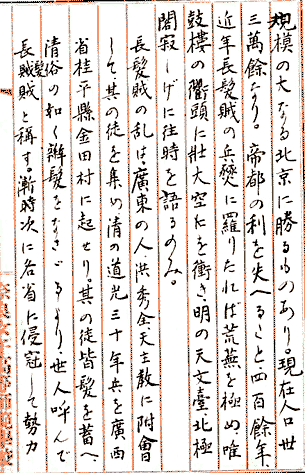 規模の大なる北京に勝るものあり。現在人口廿
三萬餘なり。帝都の利を失へること四百餘年、
近年長髮賊の兵燹に罹りたれば荒蕪を極め唯
鼓樓の層頭に壯大空を衝き、明の天文臺北極
閣寂しげに往時を語るのみ。
長髮賊の乱は、廣東の人洪秀全天主教に附會
して其の徒を集め清の道光三十年兵を廣西
省桂平縣金田村に起せり。其の徒皆髮を蓄へ
清俗の如く辮髮をなさゞるより、世人呼んで
長髮賊と稱す。漸時次に各省に侵冠して勢力